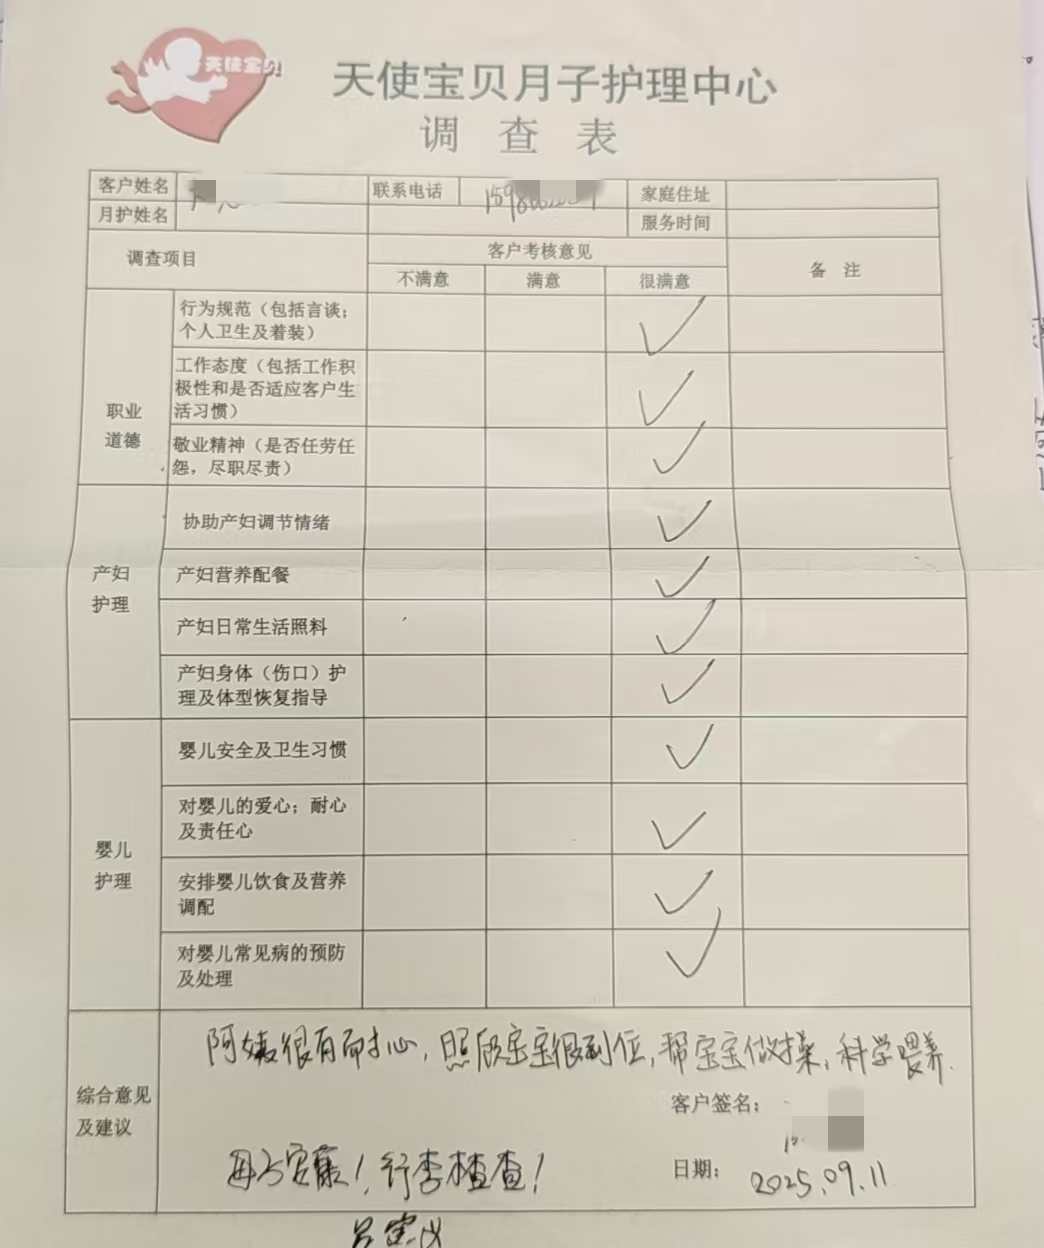 天使宝贝
天使宝贝月子护理中心
调查表
客户姓名 联系电话 家庭住址
月护姓名 服务时间
调查项目 客户考核意见 备 注
不满意 满意 很满意
职业
道德
行为规范（包括言谈；
个人卫生及着装）
工作态度（包括工作积
极性和是否适应客户生
活习惯）
敬业精神（是否任劳任
怨，尽职尽责）
产妇
护理
协助产妇调节情绪
产妇营养配餐
产妇日常生活照料
产妇身体（伤口）护
理及体型恢复指导
婴儿
护理
婴儿安全及卫生习惯
对婴儿的爱心；耐心
及责任心
安排婴儿饮食及营养
调配
对婴儿常见病的预防
及处理
综合意见
及建议
阿姨很有耐心，照顾宝宝很到位，帮宝宝做操，科学喂养.
客户签名：
母子安康！，行李检查！
日期： 2025.09.11